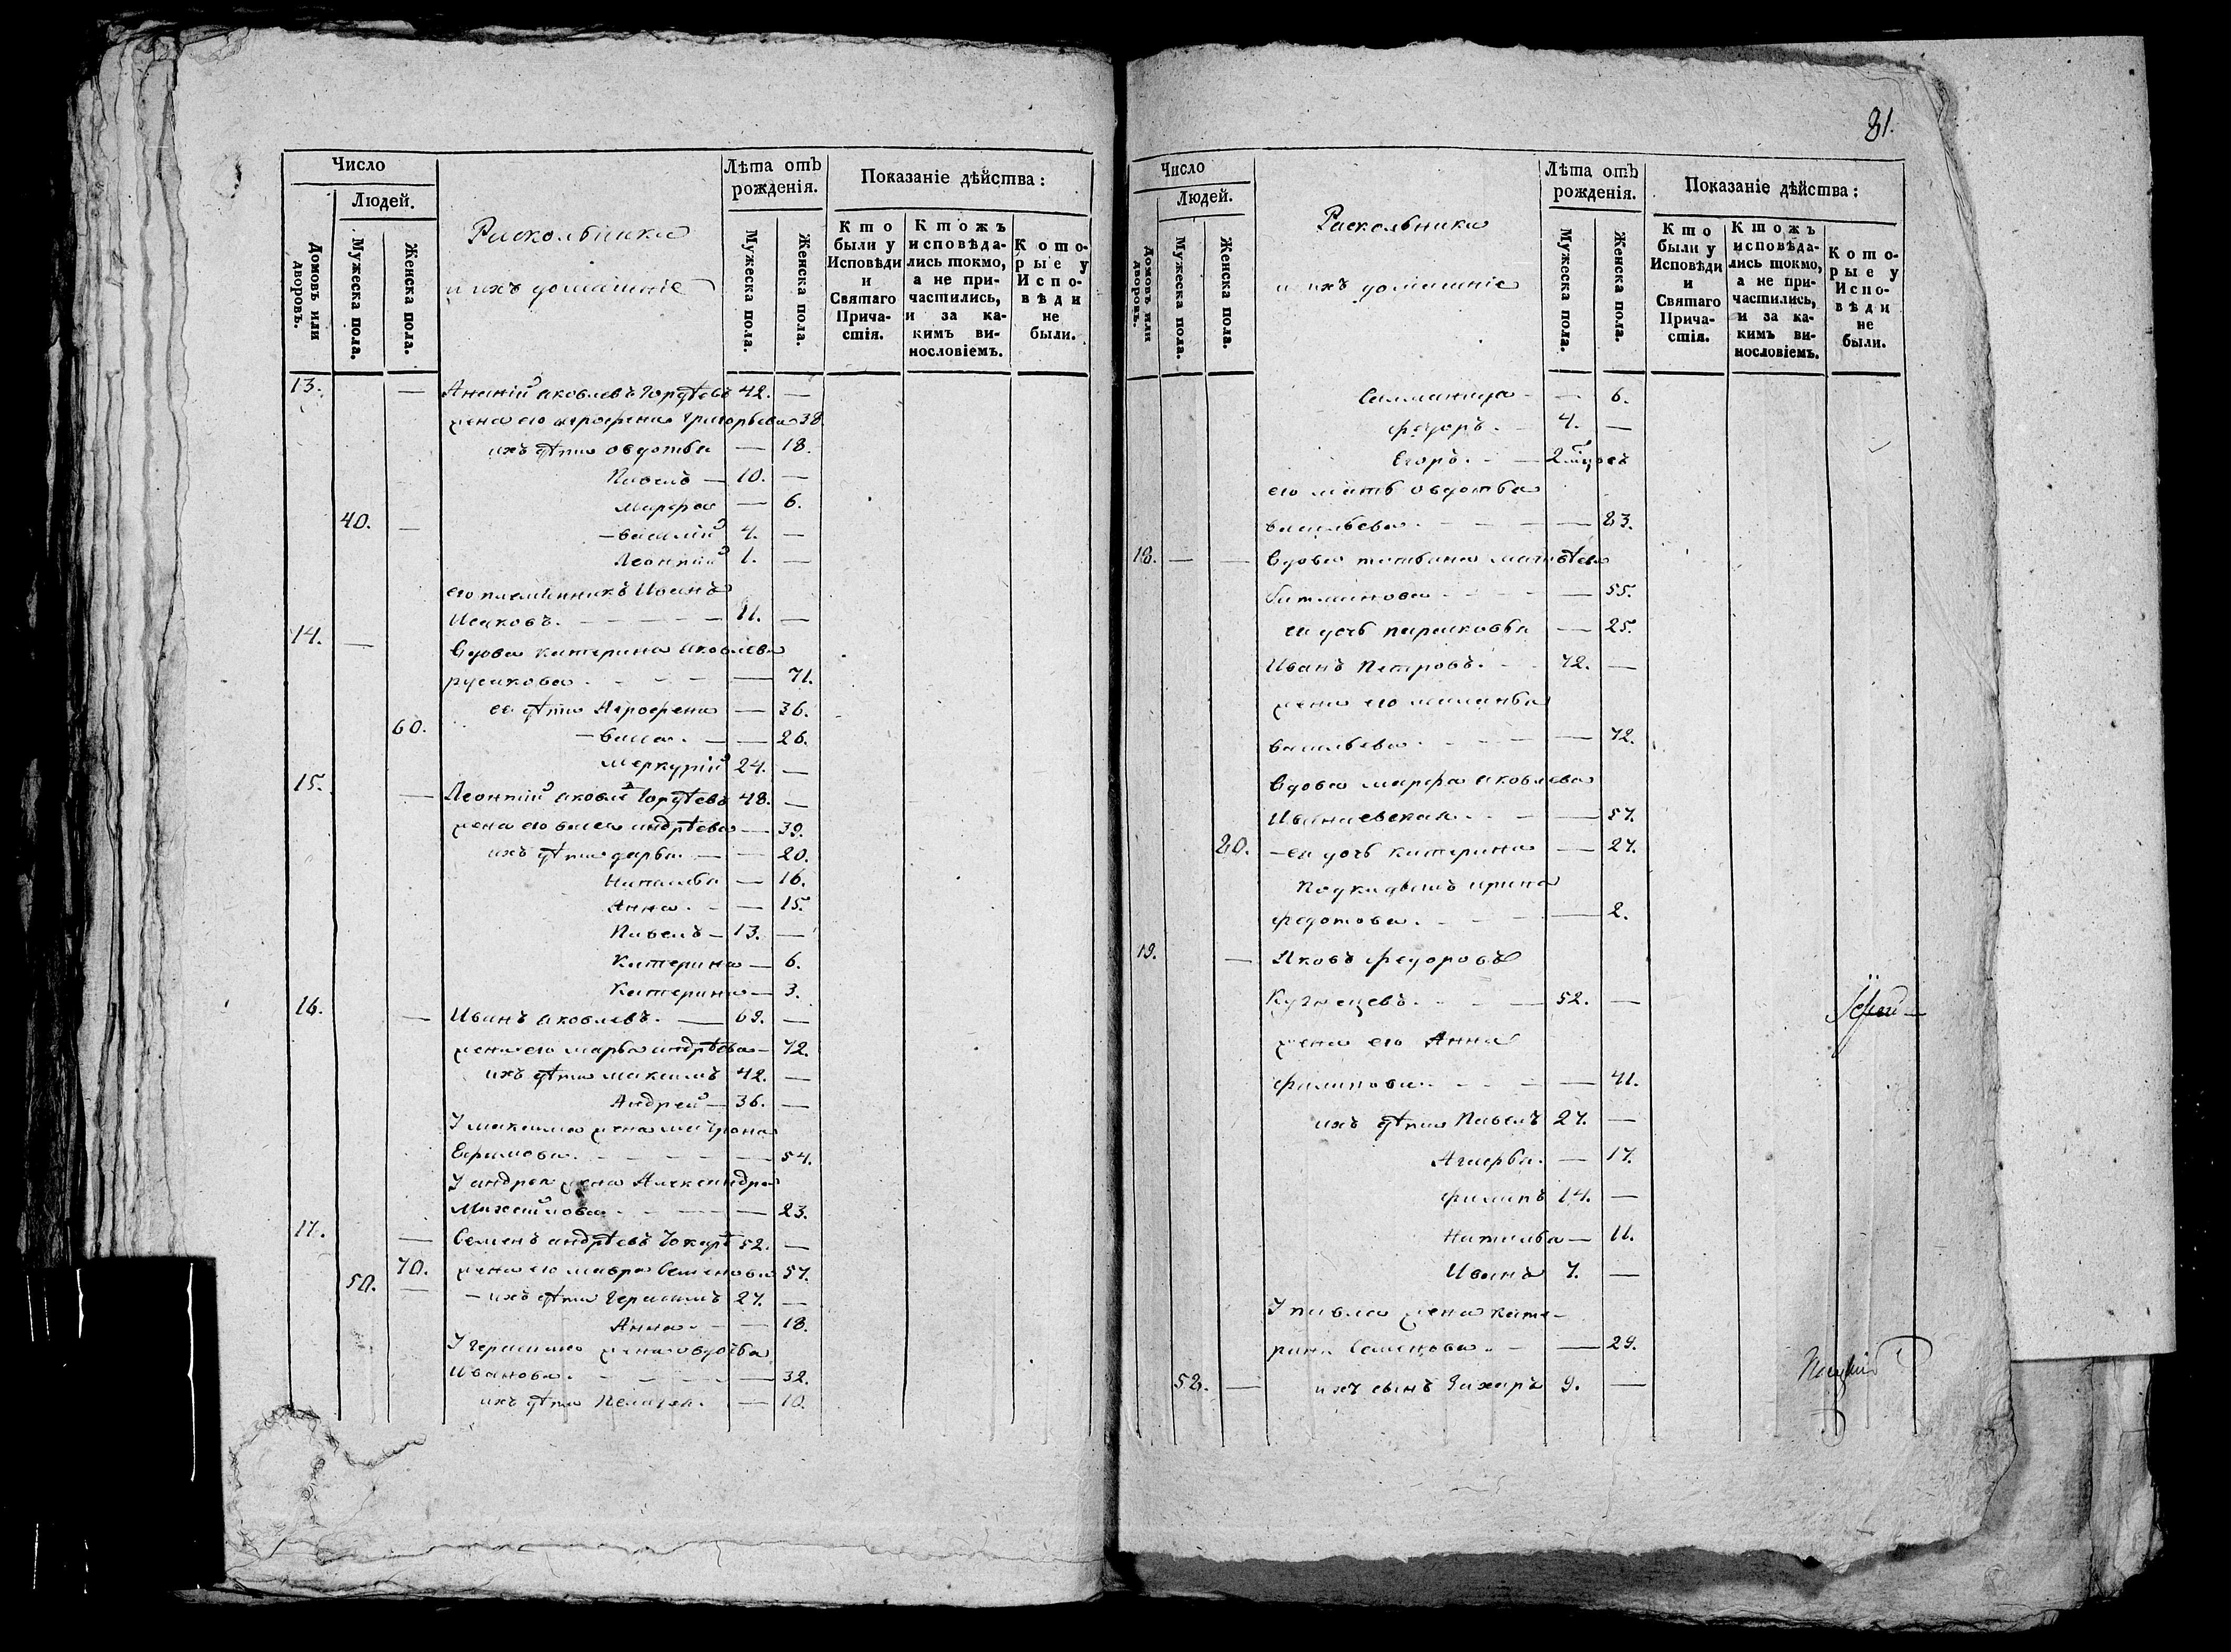 Число
Людей.
Домовъ или дворовъ.
Мужеска пола.
Женска пола.
Раскольники
и ихъ домашніе
Лѣта отъ
рожденія.
Мужеска пола.
Женска пола.
Показаніе дѣйства:
Кто
были у
Исповѣди
и
Святаго
Прича-
стія.
Ктожъ
исповѣда-
лись токмо,
а не при-
частились,
и за ка-
кимъ ви-
нословіемъ.
Кото-
рые у
Испо-
вѣди
не
были.
13. — Ананій Яковлевъ Гордѣевъ 42. —
жена его Агрофена Григорьева 38
ихъ дѣти Овдотья — 18.
Павелъ — 10. —
Марфа — 6.
40. — — Василий 4. —
Леонтий 1. —
его племянникъ Иванъ
Исаковъ. — 11. —
14. — Вдова Катерина Яковлева
русакова — 71.
ее дѣти Агрофена — 36.
60. — Васса. — 26.
Меркурий 24. —
15. — Леонтий Яковле Гордѣевъ 48. —
жена его Васса Андрѣева — 39.
ихъ дѣти Дарья — 20.
Наталья — 16.
Анна. — 15.
Павелъ — 13. —
Катерина — 6.
Катерина — 3.
16. — Иванъ Яковлевъ. — 69. —
жена его Марья Андрѣева — 72.
ихъ дѣти Максимъ 42. —
Андрей — 36. —
У Максима жена Матрона
Ефимова. — 54.
У Андрея жена Александра
Михайлова — 23.
17. — Семенъ Андрѣевъ 52. —
70. жена его Мавра Семенова 57.
50. — — ихъ дѣти Герасимъ 27. —
Анна. — 18.
У Герасима жена Овдотья
Иванова. — 32.
ихъ дѣти Пелагея. — 10.
81.
Число
Людей.
Домовъ или дворовъ.
Мужеска пола.
Женска пола.
Раскольники
и ихъ домашніе
Лѣта отъ
рожденія.
Мужеска пола.
Женска пола.
Показаніе дѣйства:
Кто
были у
Исповѣди
и
Святаго
Прича-
стія.
Ктожъ
исповѣда-
лись токмо,
а не при-
частились,
и за ка-
кимъ ви-
нословіемъ.
Кото-
рые у
Испо-
вѣди
не
были.
— 6.
Федоръ. — 4. —
Егоръ. — 2
его мать Овдотья
Васильева. — 83.
18. — — Вдова Татьяна Матвѣева
— 55.
ея дочь Парасковья — 25.
Иванъ Петровъ. 72. —
жена его Маланья
Васильева. — 72.
Вдова Марфа Яковлева
Иванаевская. — 57.
80. — ея дочь Катерина — 27.
Подкидышъ Ирина
Федотова. — 2.
19. — Яковъ Федоровъ
Кузнецевъ. — 52. —
жена его Анна
Филипова. — 41.
ихъ дѣти Павелъ 27. —
— 17.
Филипъ 14. —
Наталья — 11.
Иванъ 7. —
У Павла жена Кате-
рина Семенова. — 29.
58. — ихъ сынъ Захаръ 9. —